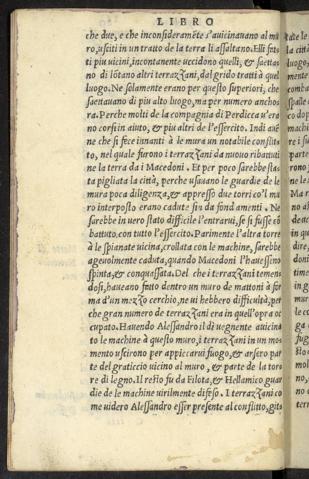 LIBRO
che due, e che inconsideramẽte s'auicinauano al mu
ro, usciti in un tratto de la terra li assaltano. Elli fat
ti piu uicini, incontanente uccidono quelli, & saettas
no di lõtano altri terrazzani, dal grido tratti à quel
luogo. Ne solamente erano per questo superiori, che
saettauano di piu alto luogo, ma per numero anchos
ra. Perche molti de la compagnia di Perdicca u'eras
no corsi in aiuto, & piu altri de l'essercito. Indi auẽ
ne che si fece innanti à le mura un notabile conflits
to, nel quale furono i terrazzani da nuouo ributtati
ne la terra da i Macedoni. Et per poco sarebbe stas
ta pigliata la città, perche usauano le guardie de le
mura poca diligenza, & appresso due torri co'l mu
ro interposto erano cadute sin da fondamenti. Ne
sarebbe in uero stato difficile l'entrarui, se si fusse cõ
battuto, con tutto l'essercito. Parimente l'altra torre
à le spianate uicina, crollata con le machine, sarebbe
ageuolmente caduta, quando Macedoni l'hauessino
spinta, & conquassata. Del che i terrazzani temens
dosi, haueano fatto dentro un muro de mattoni à fors
ma d'un mezzo cerchio, ne ui hebbero difficultà, per
che gran numero de terrazzani era in quell'opra oc
cupato. Hauendo Alessandro il dì uegnente auicina
to le machine à questo muro, i terrazzani in un mos
mento uscirono per appiccarui fuogo, & arsero pars
te del graticcio uicino al muro, & parte de la tors
re di legno. Il resto fu da Filota, & Hellamico guar
die de le machine uirilmente difeso. I terrazzani co
me uidero Alessandro esser presente al conflitto, gits